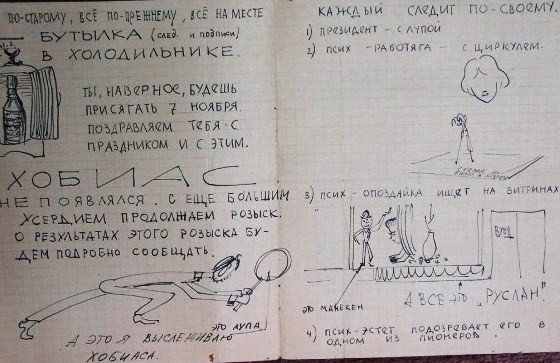 ПО-СТАРОМУ, ВСЁ ПО-ПРЕЖНЕМУ, ВСЁ НА МЕСТЕ
БУТЫЛКА (след. и подписи)
В ХОЛОДИЛЬНИКЕ.
ТЫ, НАВЕРНОЕ, БУДЕШЬ
ПРИСЯГАТЬ 7 НОЯБРЯ.
ПОЗДРАВЛЯЕМ ТЕБЯ С
ПРАЗДНИКОМ И С ЭТИМ.
ХОБИАС
НЕ ПОЯВЛЯЛСЯ. С ЕЩЕ БОЛЬШИМ
УСЕРДИЕМ ПРОДОЛЖАЕМ РОЗЫСК.
О РЕЗУЛЬТАТАХ ЭТОГО РОЗЫСКА БУ-
ДЕМ ПОДРОБНО СООБЩАТЬ.
ЭТО ЛУПА
А ЭТО Я ВЫСЛЕЖИВАЮ
ХОБИАСА.
КАЖДЫЙ СЛЕДИТ ПО-СВОЕМУ.
1) ПРЕЗИДЕНТ - С ЛУПОЙ
2) ПСИХ - РАБОТЯГА - С ЦИРКУЛЕМ.
3) ПСИХ - ОПОЗДАЙКА ИЩЕТ НА ВИТРИНАХ
ВХОД
ЭТО МАНЕКЕН
А ВСЕ ЭТО „РУСЛАН"
4) ПСИХ-ЭСТЕТ ПОДОЗРЕВАЕТ ЕГО В
ОДНОМ ИЗ ПИОНЕРОВ.